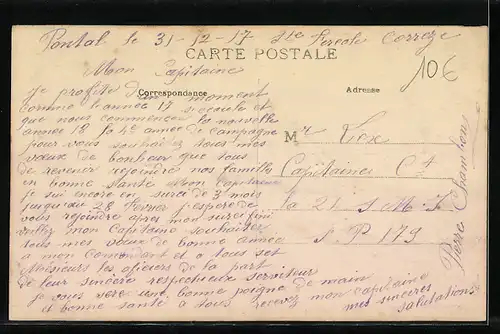 Pontal le 31-12-17 Ste Féreole Correze
CARTE POSTALE
106
Mon Capitaine
Correspondance
Adresse
Je profite d'un moment
comme l'année 17 s'ecoule et
que nous commencon la nouvelle
année 18 la 4e année de Campagne
pour vous souhaitez tous mes
vœux de bonheur que tous
de revenir rejoindre nos familles
en bonne santé Mon Capitaine
je sui encore en sursi de 3 mois
jusqu'au 28 Fevrier j'espère de
vous rejoindre apres mon sursi fini
veillez mon Capitaine souhaiter
tous mes vœux de bonne année
a mon Comandant et a tous ses
Messieurs les oficiers de la part
de leur sincère respectueux serviteur
je vous sere une bonne poigne de main
et bonne santé a tous recevez mon capitaine
mes sincères
salutations
Mr Lex
Capitaine Ct
la 21 S M I
S P 179
Pierre Chambons